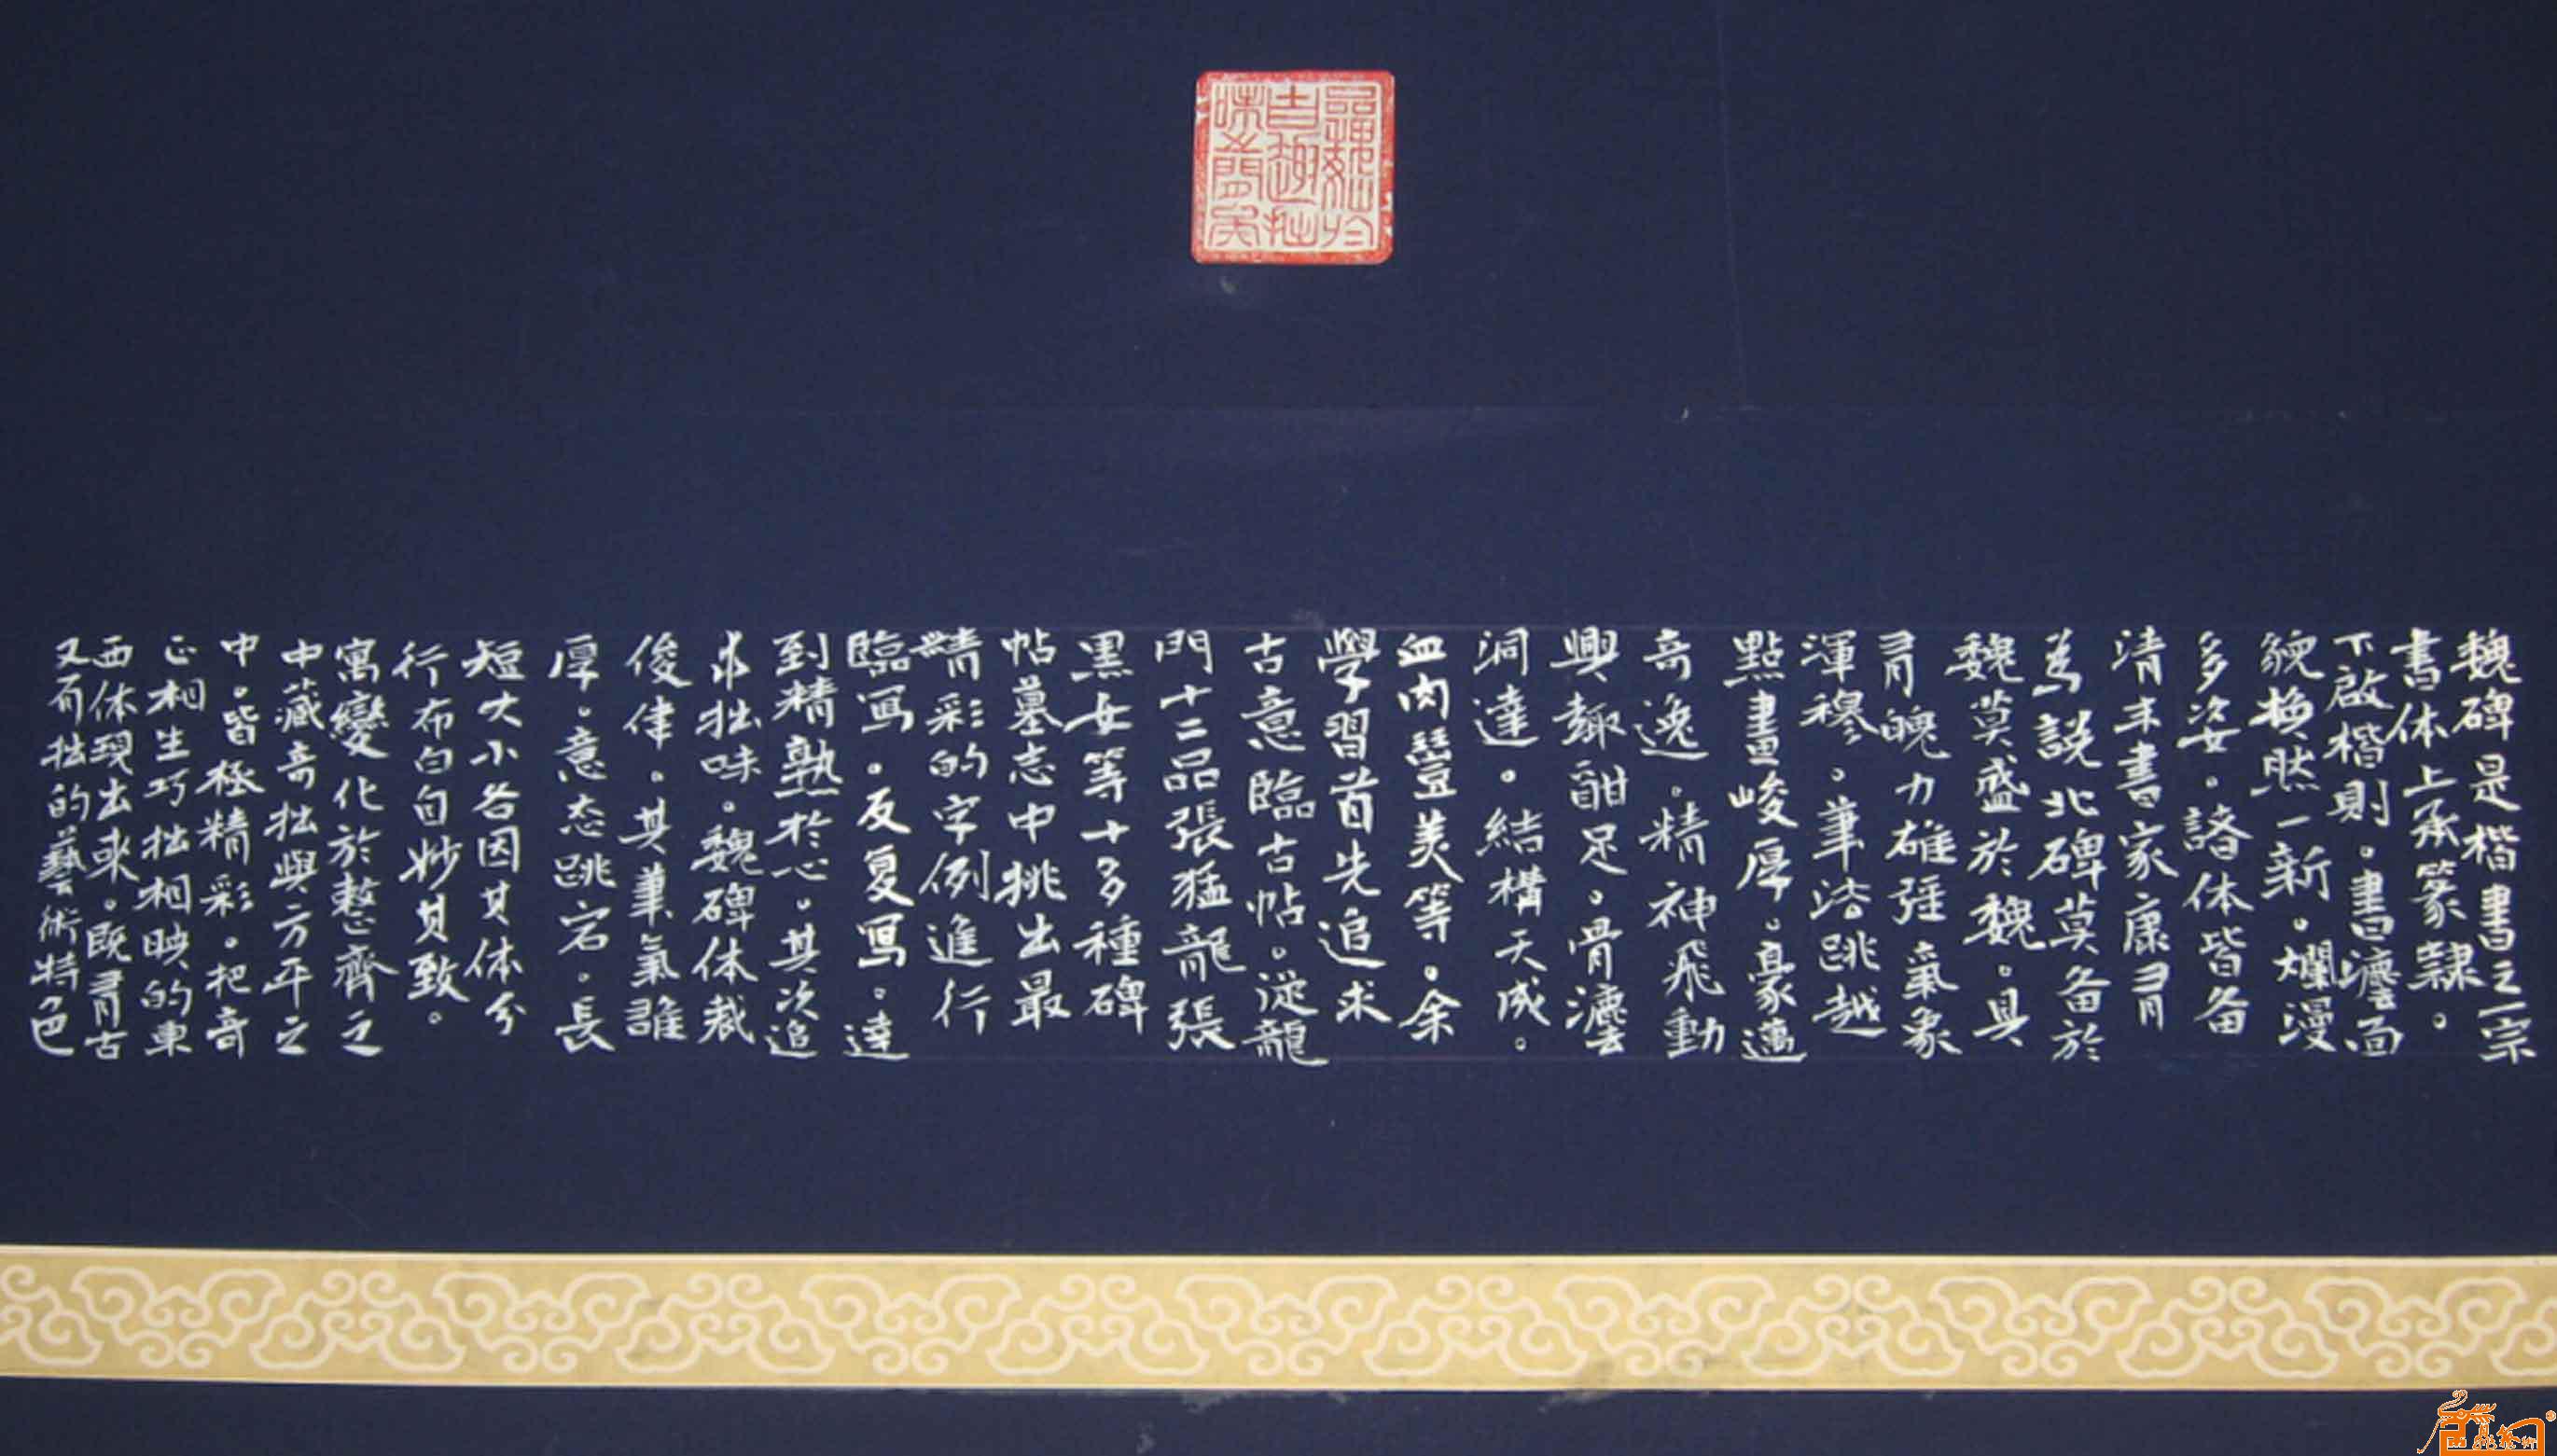 魏碑是楷書之一宗
書体上承篆隸。
下啟楷則。書灋面
貌換然一新。爛漫
多姿。諸体皆备
清末書家康有
為說北碑莫备於
魏莫盛於魏。具
有魄力雄强氣象
渾穆。筆法跳越
點畫峻厚。豪邁
奇逸。精神飛動
興趣酣足。骨灋
洞達。結構天成。
血肉豐美等。余
學習首先追求
古意臨古帖。從龍
門十二品張猛龍張
黑女等十多種碑
帖墓志中挑出最
精彩的字例進行
臨寫。反复寫。達
到精熟於心。其次追
求拙味。魏碑体裁
俊律。其筆氣雄
厚。意态跳宕。長
短大小各因其体分
行布白自妙其致。
寓變化於整齊之
中藏奇拙與方平之
中。皆極精彩。把奇
正相生巧拙相映的東
西体現出來。既有古
又有拙的藝術特色